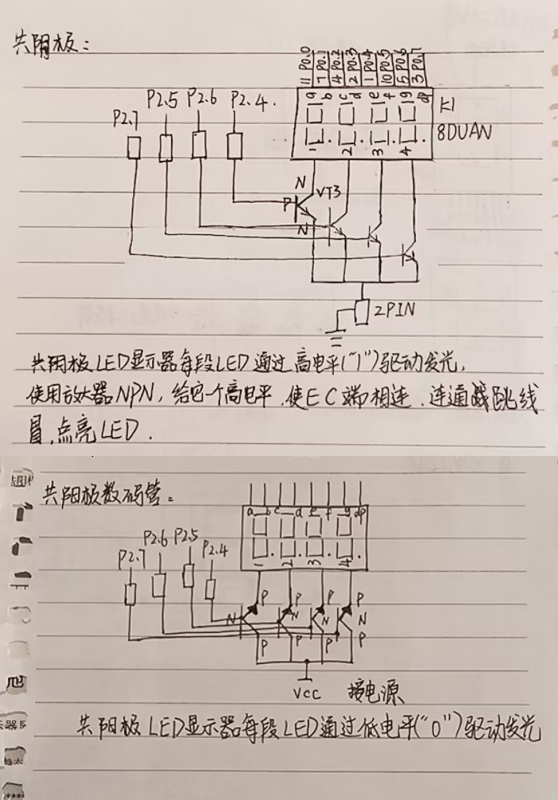 共阴极：
11 P0.0
7 P0.1
4 P0.2
2 P0.3
1 P0.4
10 P0.5
5 P0.6
3 P0.7
P2.7 P2.5 P2.6 P2.4.
a b c d e f g dp
K1
8DUAN
1 2 3 4
N
P VT3
N
2PIN
共阴极LED显示器每段LED通过高电平("1")驱动发光，
使用放大器NPN，给它一个高电平.使EC端相连.连通跳线
冒.点亮LED.
共阳极数码管。
a b c d e f g dp
P2.7 P2.6 P2.5 P2.4
1 2 3 4
P P P P
N N N N
P P P P
VCC 接电源
共阳极LED显示器每段LED通过低电平("0")驱动发光